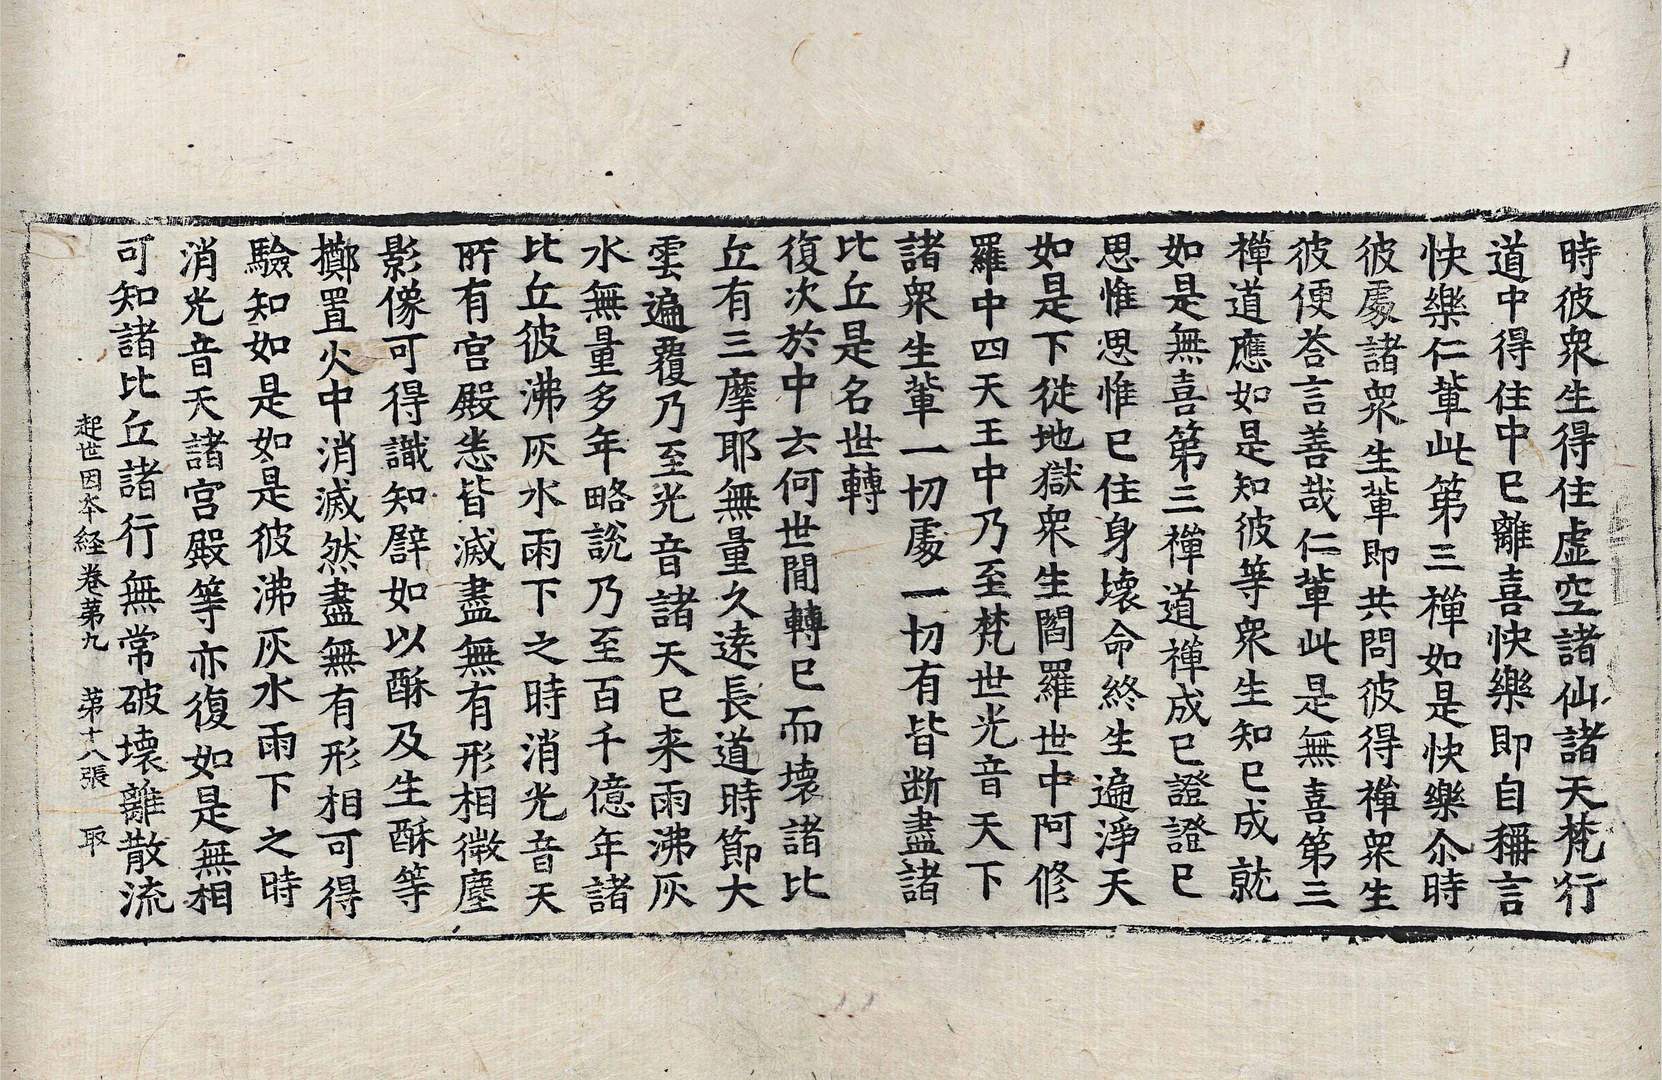 時彼衆生得住虚空諸仙諸天梵行
道中得住中已離喜快樂即自稱言
快樂仁軰此第三禪如是快樂尒時
彼處諸衆生軰即共問彼得禪衆生
彼便荅言善哉仁軰此是無喜第三
禪道應如是知彼等衆生知已成就
如是無喜第三禪道禪成已證證已
思惟思惟已住身壊命終生遍淨天
如是下從地獄衆生閻羅世中阿修
羅中四天王中乃至梵世光音天下
諸衆生軰一切處一切有皆断盡諸
比丘是名世轉
復次於中云何世間轉已而壊諸比
丘有三摩耶無量久逺長道時節大
雲遍覆乃至光音諸天已来雨沸灰
水無量多年略說乃至百千億年諸
比丘彼沸灰水雨下之時消光音天
所有宫殿悉皆滅盡無有形相微塵
影像可得識知譬如以酥及生酥等
擲置火中消滅然盡無有形相可得
驗知如是如是彼沸灰水雨下之時
消光音天諸宫殿等亦復如是無相
可知諸比丘諸行無常破壊離散流
起世因夲経卷苐九 苐十八張 取